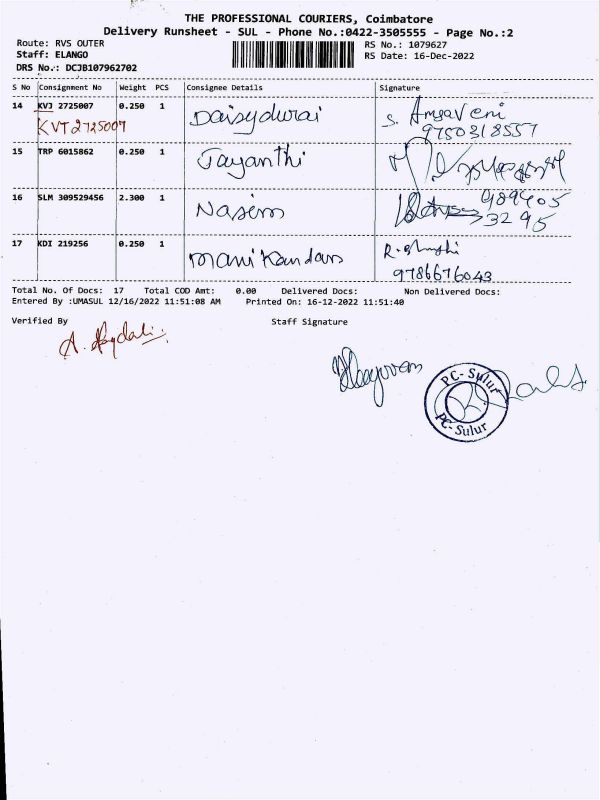 THE PROFESSIONAL COURIERS, Coimbatore
Delivery Runsheet - SUL - Phone No.:0422-3505555 - Page No.:2
Route: RVS OUTER
Staff: ELANGO
DRS No.: DCJB107962702
RS No.: 1079627
RS Date: 16-Dec-2022
S No Consignment No Weight PCS Consignee Details Signature
14 KVJ 2725007 0.250 1 Daisydurai S. Amsaveni
KVT 2725007 9750318557
15 TRP 6015862 0.250 1 Jayanthi
16 SLM 309529456 2.300 1 Naseem 989405
3295
17 KDI 219256 0.250 1 Manikandan
9786676043
Total No. Of Docs: 17 Total COD Amt: 0.00 Delivered Docs: Non Delivered Docs:
Entered By :UMASUL 12/16/2022 11:51:08 AM Printed On: 16-12-2022 11:51:40
Verified By Staff Signature
PC-Sulur
PC-Sulur